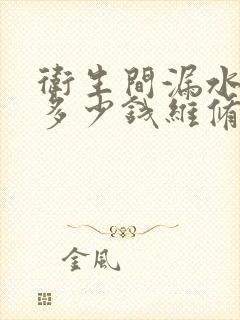 衛生間漏水
多少钱維修
金風